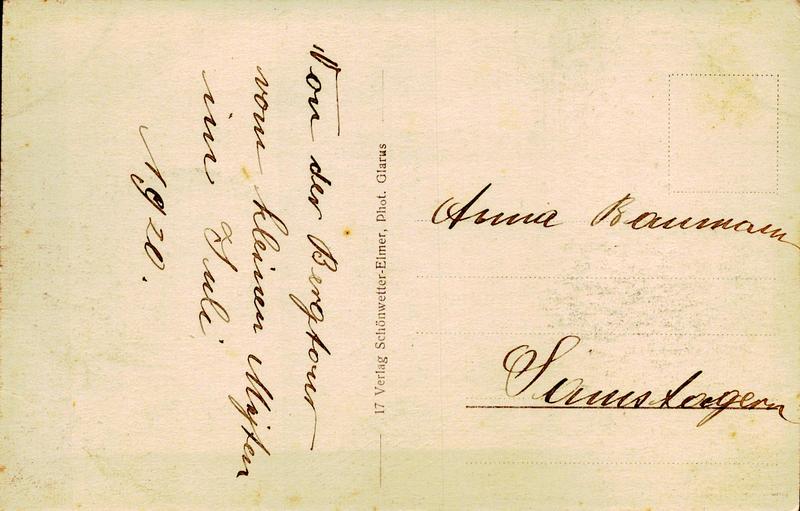 Von der Bergtour
vom kleinen Myten
im Juli
1920.
17 Verlag Schönwetter-Elmer, Phot. Glarus
Anna Baumann
Samstagern